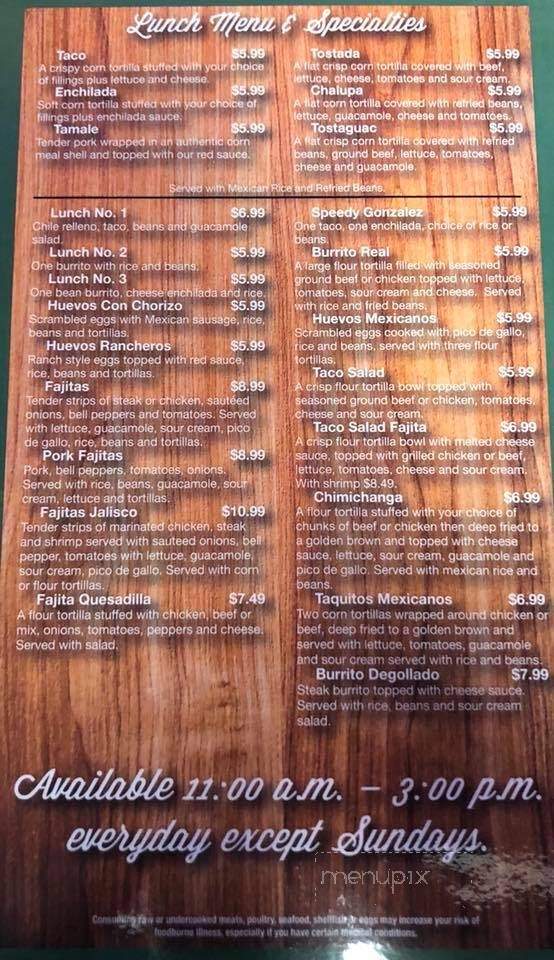 Lunch Menu & Specialties
Taco $5.99
A crispy corn tortilla stuffed with your choice
of fillings plus lettuce and cheese.
Enchilada $5.99
Soft corn tortilla stuffed with your choice of
fillings plus enchilada sauce.
Tamale $5.99
Tender pork wrapped in an authentic corn
meal shell and topped with our red sauce.
Tostada $5.99
A flat crisp corn tortilla covered with beef,
lettuce, cheese, tomatoes and sour cream.
Chalupa $5.99
A flat corn tortilla covered with refried beans,
lettuce, guacamole, cheese and tomatoes.
Tostaguac $5.99
A flat crisp corn tortilla covered with refried
beans, ground beef, lettuce, tomatoes,
cheese and guacamole.
Served with Mexican Rice and Refried Beans.
Lunch No. 1 $6.99
Chile relleno, taco, beans and guacamole
salad.
Lunch No. 2 $5.99
One burrito with rice and beans.
Lunch No. 3 $5.99
One bean burrito, cheese enchilada and rice.
Huevos Con Chorizo $5.99
Scrambled eggs with Mexican sausage, rice,
beans and tortillas.
Huevos Rancheros $5.99
Ranch style eggs topped with red sauce,
rice, beans and tortillas.
Fajitas $8.99
Tender strips of steak or chicken, sautéed
onions, bell peppers and tomatoes. Served
with lettuce, guacamole, sour cream, pico
de gallo, rice, beans and tortillas.
Pork Fajitas $8.99
Pork, bell peppers, tomatoes, onions.
Served with rice, beans, guacamole, sour
cream, lettuce and tortillas.
Fajitas Jalisco $10.99
Tender strips of marinated chicken, steak
and shrimp served with sauteed onions, bell
pepper, tomatoes with lettuce, guacamole,
sour cream, pico de gallo. Served with corn
or flour tortillas.
Fajita Quesadilla $7.49
A flour tortilla stuffed with chicken, beef or
mix, onions, tomatoes, peppers and cheese.
Served with salad.
Speedy Gonzalez $5.99
One taco, one enchilada, choice of rice or
beans.
Burrito Real $5.99
A large flour tortilla filled with seasoned
ground beef or chicken topped with lettuce,
tomatoes, sour cream and cheese. Served
with rice and fried beans.
Huevos Mexicanos $5.99
Scrambled eggs cooked with pico de gallo,
rice and beans, served with three flour
tortillas.
Taco Salad $5.99
A crisp flour tortilla bowl topped with
seasoned ground beef or chicken, tomatoes,
cheese and sour cream.
Taco Salad Fajita $6.99
A crisp flour tortilla bowl with melted cheese
sauce, topped with grilled chicken or beef,
lettuce, tomatoes, cheese and sour cream.
With shrimp $8.49.
Chimichanga $6.99
A flour tortilla stuffed with your choice of
chunks of beef or chicken then deep fried to
a golden brown and topped with cheese
sauce, lettuce, sour cream, guacamole and
pico de gallo. Served with mexican rice and
beans.
Taquitos Mexicanos $6.99
Two corn tortillas wrapped around chicken or
beef, deep fried to a golden brown and
served with lettuce, tomatoes, guacamole
and sour cream served with rice and beans.
Burrito Degollado $7.99
Steak burrito topped with cheese sauce.
Served with rice, beans and sour cream
salad.
Available 11:00 a.m. - 3:00 p.m.
everyday except Sundays.
menupix
Consuming raw or undercooked meats, poultry, seafood, shellfish or eggs may increase your risk of
foodborne illness, especially if you have certain medical conditions.